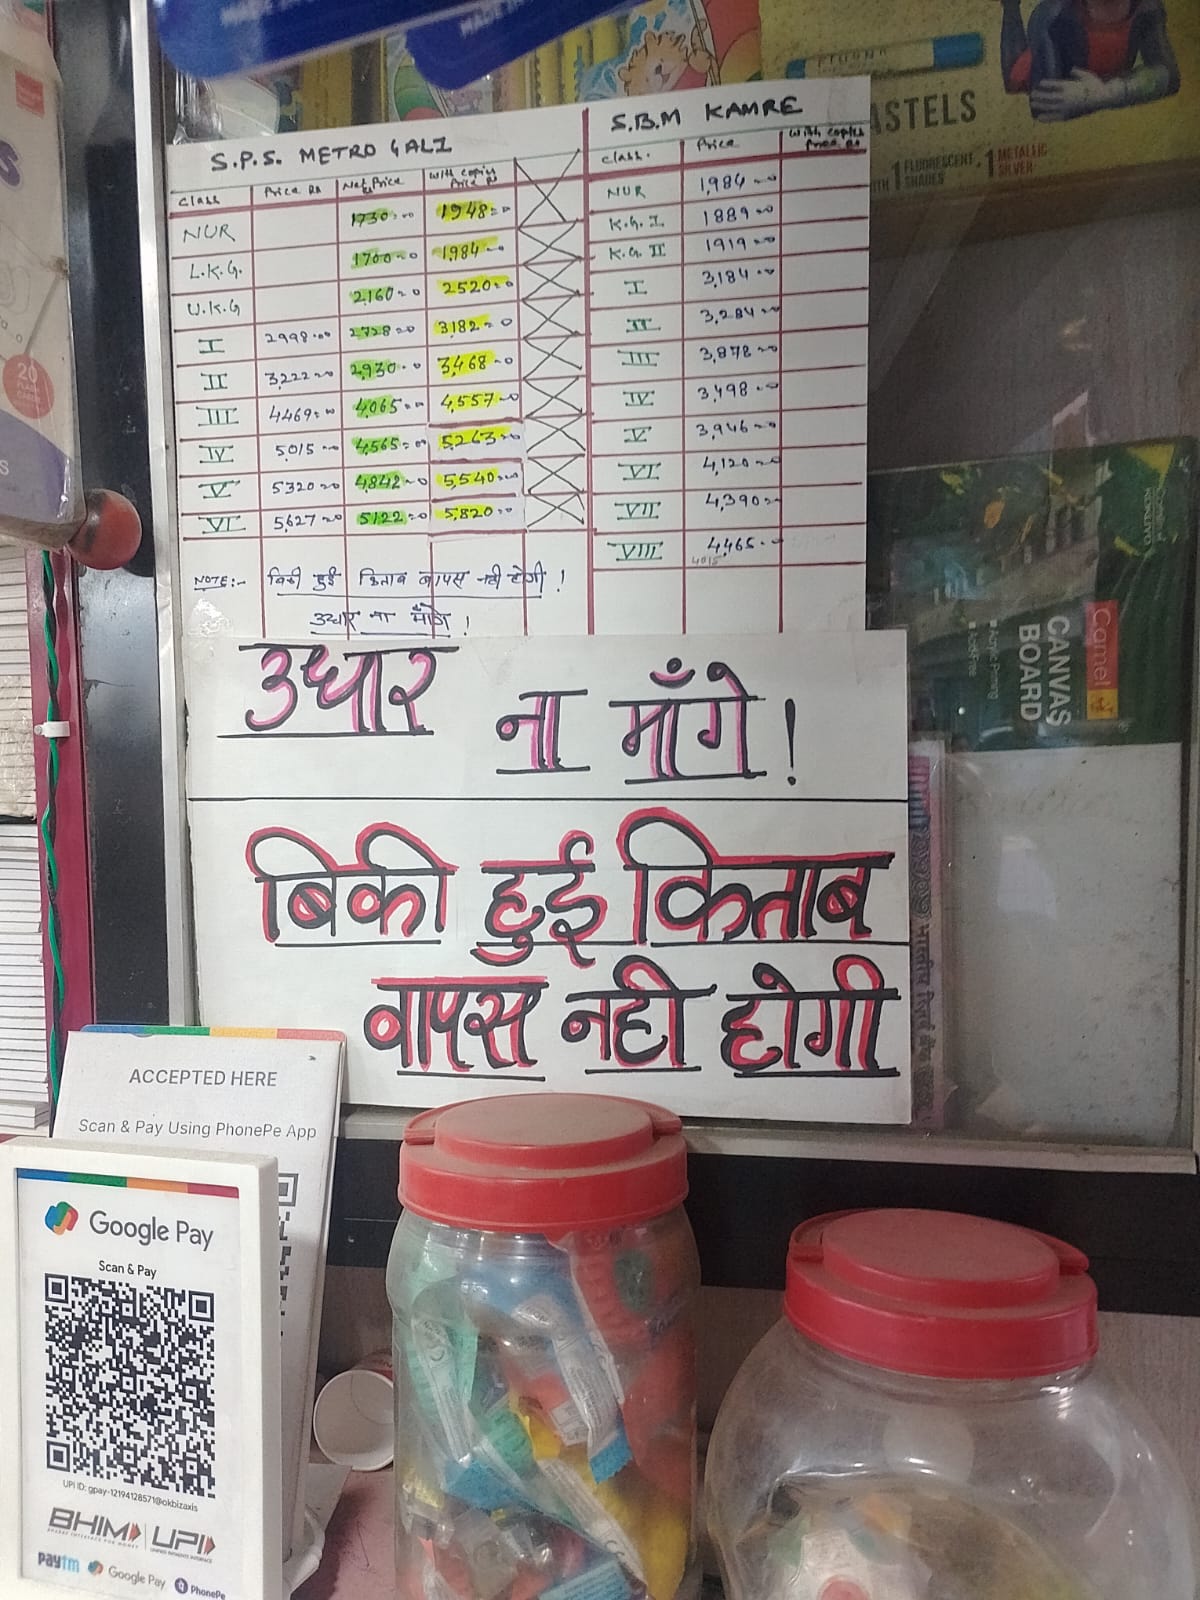 MADE IN
ASTELS
1 FLUORESCENT SHADES
1 METALLIC SILVER
S.P.S. METRO GALI
Class Price Rs Net Price With copies Price Rs
NUR 1730=00 1948=00
L.K.G. 1700=00 1984=00
U.K.G 2160=00 2520=00
I 2998=00 2728=00 3182=00
II 3,222=00 2,930=00 3,468=00
III 4469=00 4,065=00 4,557=00
IV 5,015=00 4,565=00 5,263=00
V 5320=00 4,842=00 5,540=00
VI 5,627=00 5122=00 5,820=00
NOTE:- बिकी हुई किताब वापस नही होगी !
उधार ना माँगे !
S.B.M KAMRE
Class. Price With copies Price Rs
NUR 1,984=00
K.G. I 1889=00
K.G. II 1919=00
I 3,184=00
II 3,284=00
III 3,878=00
IV 3,498=00
V 3,946=00
VI 4,120=00
VII 4,390=00
VIII 4,465=00
उधार ना माँगे !
बिकी हुई किताब
वापस नही होगी
Camel
CANVAS
BOARD
20
ACCEPTED HERE
Scan & Pay Using PhonePe App
Google Pay
Scan & Pay
UPI ID: gpay-12194128571@okbizaxis
BHIM UPI
paytm Google Pay PhonePe